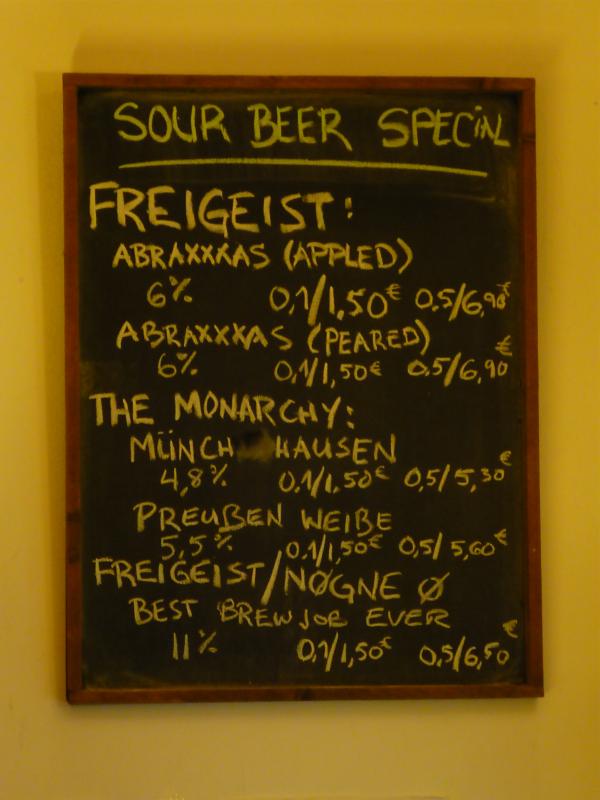 SOUR BEER SPECiAL
FREIGEIST:
ABRAXXXAS (APPLED)
6% 0,1/1,50€ 0.5/6,90€
ABRAXXXAS (PEARED)
6% 0,1/1,50€ 0.5/6,90€
THE MONARCHY:
MÜNCH HAUSEN
4,8% 0,1/1,50€ 0,5/5,30€
PREUßEN WEIßE
5,5% 0,1/1,50€ 0,5/5,60€
FREIGEIST/NØGNE Ø
BEST BREWJOB EVER
11% 0,1/1,50€ 0,5/6,50€